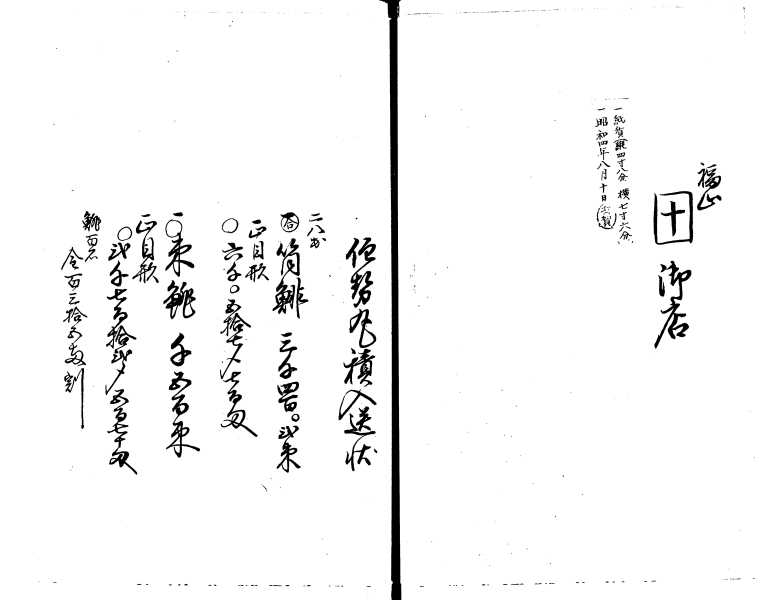 福山
十 御店
一紙質 竪四寸八分 横七寸六分
一昭和四年八月十日
伊勢丸積入送状
二八出
合 筒鯡 三千四百〇弐束
正目形
〇六千〇五拾七〆七百匁
一〇束鯡 千五百束
正目形
〇弐千七百拾弐〆五百七十匁
鯡百石
金百三拾五両割